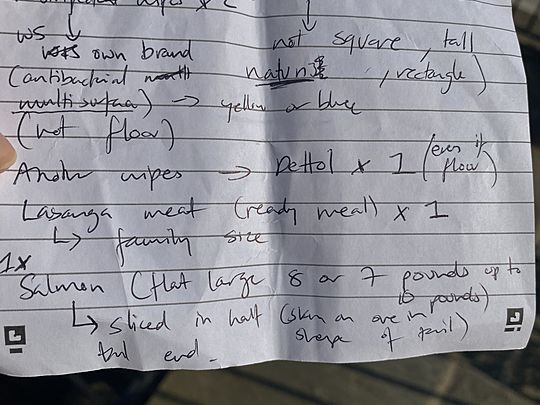 wipes x 2
WS own brand
not square, tall
(antibacterial
, rectangle)
multisurface) → yellow or blue
(not floor)
wipes → Dettol x 1 (even if floor)
Lasanga meat (ready meal) x 1
↳ family size
1x
Salmon (flat large 8 or 7 pounds up to
pounds)
↳ sliced in half (skin on are in
shape of tail)
tail end.